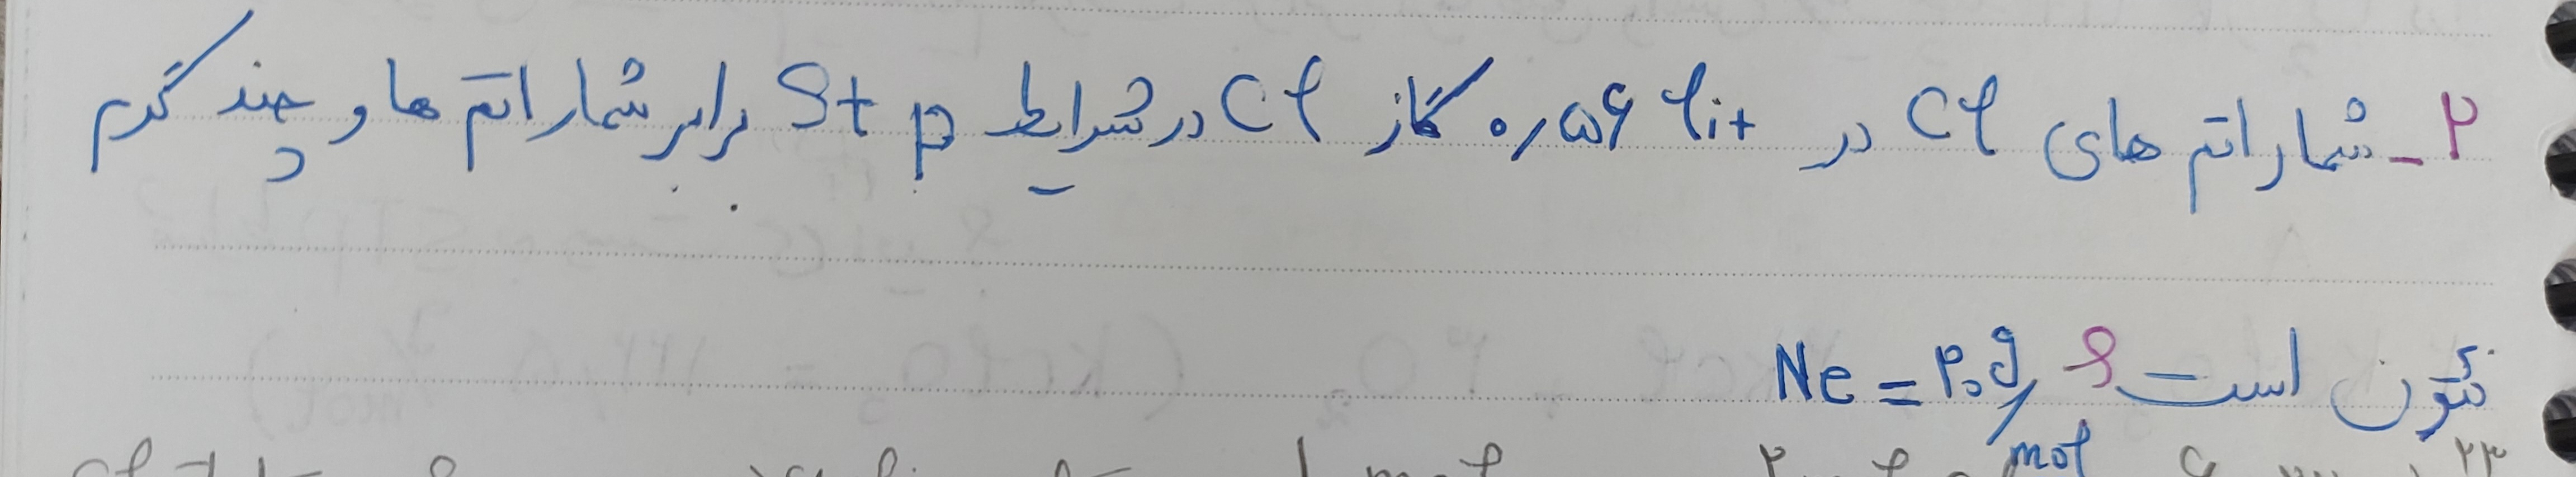 ۲- شمار اتم های Cl در ۰٫۵۶ lit گاز Cl در شرایط Stp برابر شمار اتم ها و چند گرم
نئون است ؟ Ne = ۲۰ g/mol